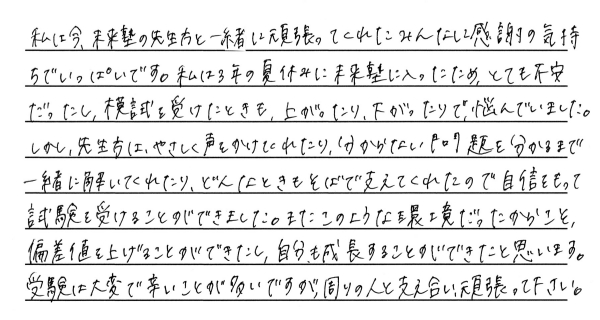 私は今、未来塾の先生方と一緒に頑張ってくれたみんなに感謝の気持
ちでいっぱいです。私は3年の夏休みに未来塾に入ったため、とても不安
だったし、模試を受けたときも、上がったり、下がったりで、悩んでいました。
しかし、先生方は、やさしく声をかけてくれたり、分からない問題を分かるまで
一緒に解いてくれたり、どんなときもそばで支えてくれたので自信をもって
試験を受けることができました。またこのような環境だったからこそ、
偏差値を上げることができたし、自分も成長することができたと思います。
受験は大変で辛いことが多いですが、周りの人と支え合い、頑張って下さい。